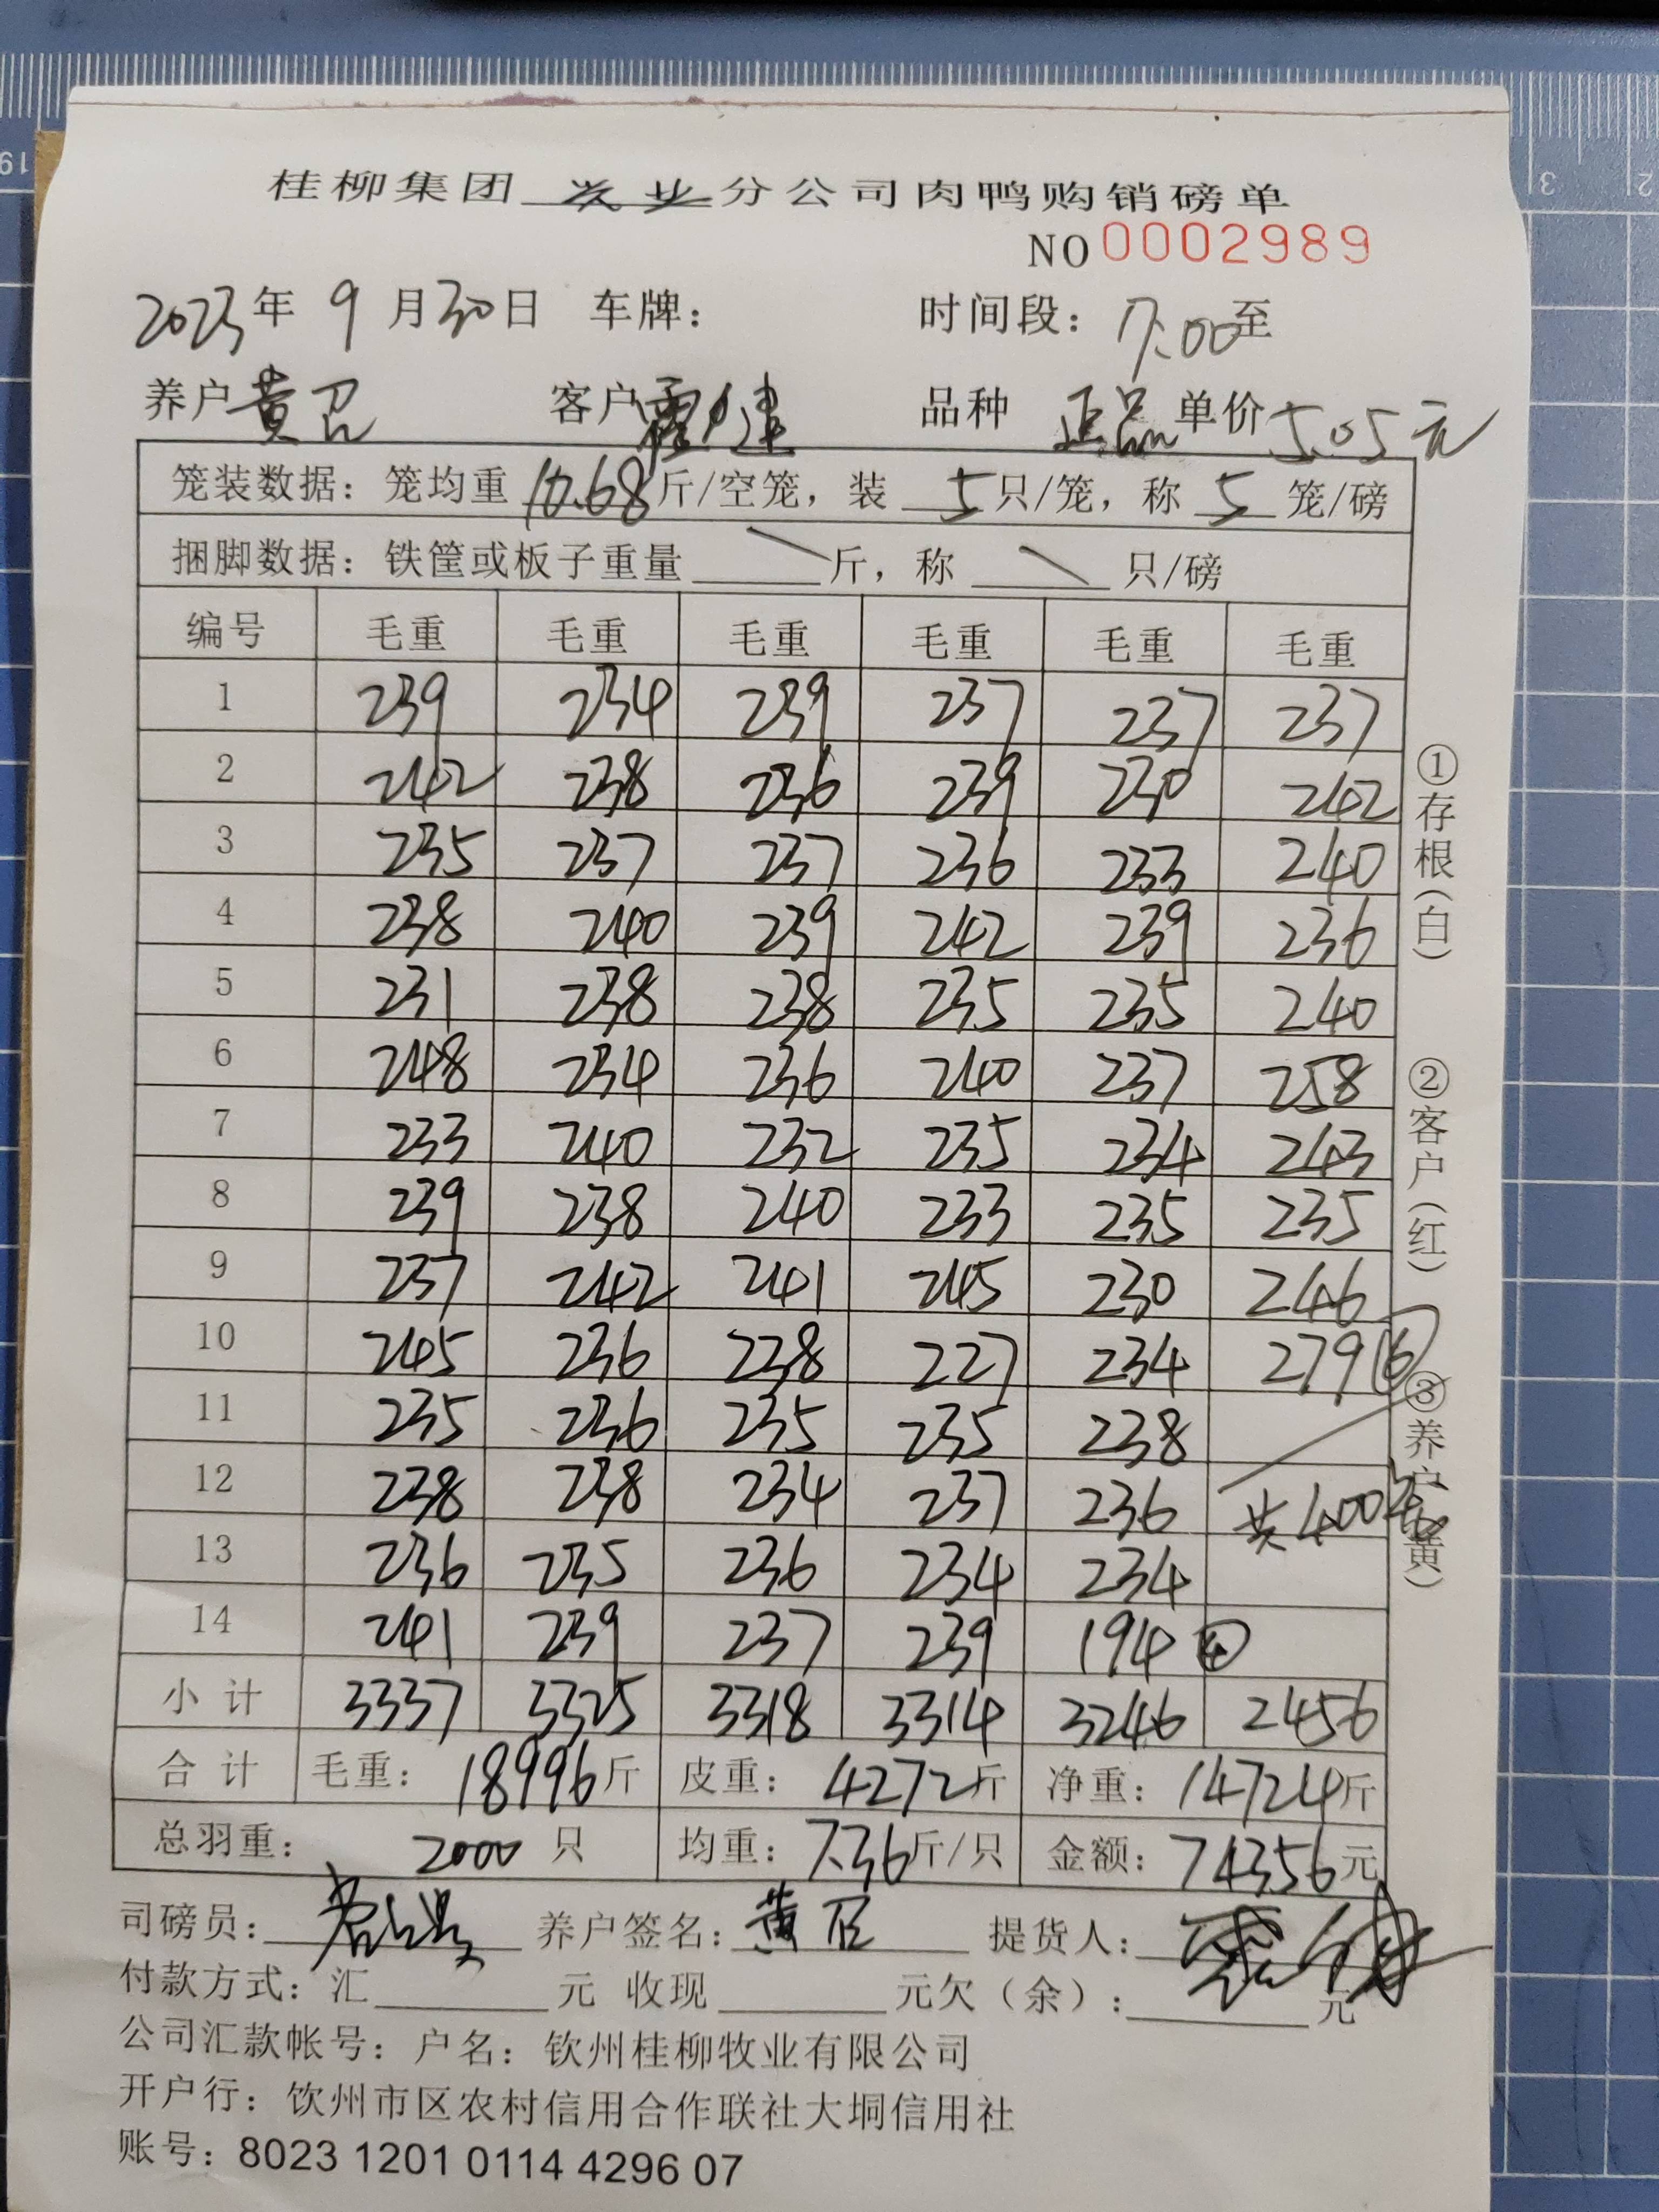 桂柳集团 兴业 分公司肉鸭购销磅单
NO 0002989
2023年 9 月30日 车牌： 时间段：17:00至
养户 黄召 客户 霍健 品种 正品 单价 5.05元
笼装数据：笼均重 10.68 斤/空笼，装 5 只/笼，称 5 笼/磅
捆脚数据：铁筐或板子重量 \ 斤，称 \ 只/磅
编号 毛重 毛重 毛重 毛重 毛重 毛重
1 239 234 239 237 237 237
2 242 238 236 239 230 242
3 235 237 237 236 233 240
4 238 240 239 242 239 236
5 231 238 238 235 235 240
6 248 234 236 240 237 258
7 233 240 232 235 234 243
8 239 238 240 233 235 235
9 237 242 241 245 230 246
10 245 236 238 227 234 279 ⑥
11 235 236 235 235 238
12 238 238 234 237 236 共400笼
13 236 235 236 234 234
14 241 239 237 239 194 ④
小 计 3337 3325 3318 3314 3246 2456
合 计 毛重：18996斤 皮重：4272斤 净重：14724斤
总羽重： 2000 只 均重：7.36斤/只 金额：74356元
司磅员： 养户签名：黄召 提货人：霍健
付款方式：汇 元 收现 元欠（余）： 元
公司汇款帐号：户名：钦州桂柳牧业有限公司
开户行：钦州市区农村信用合作联社大垌信用社
账号：8023 1201 0114 4296 07
①存根（白） ②客户（红） ③养户（黄）